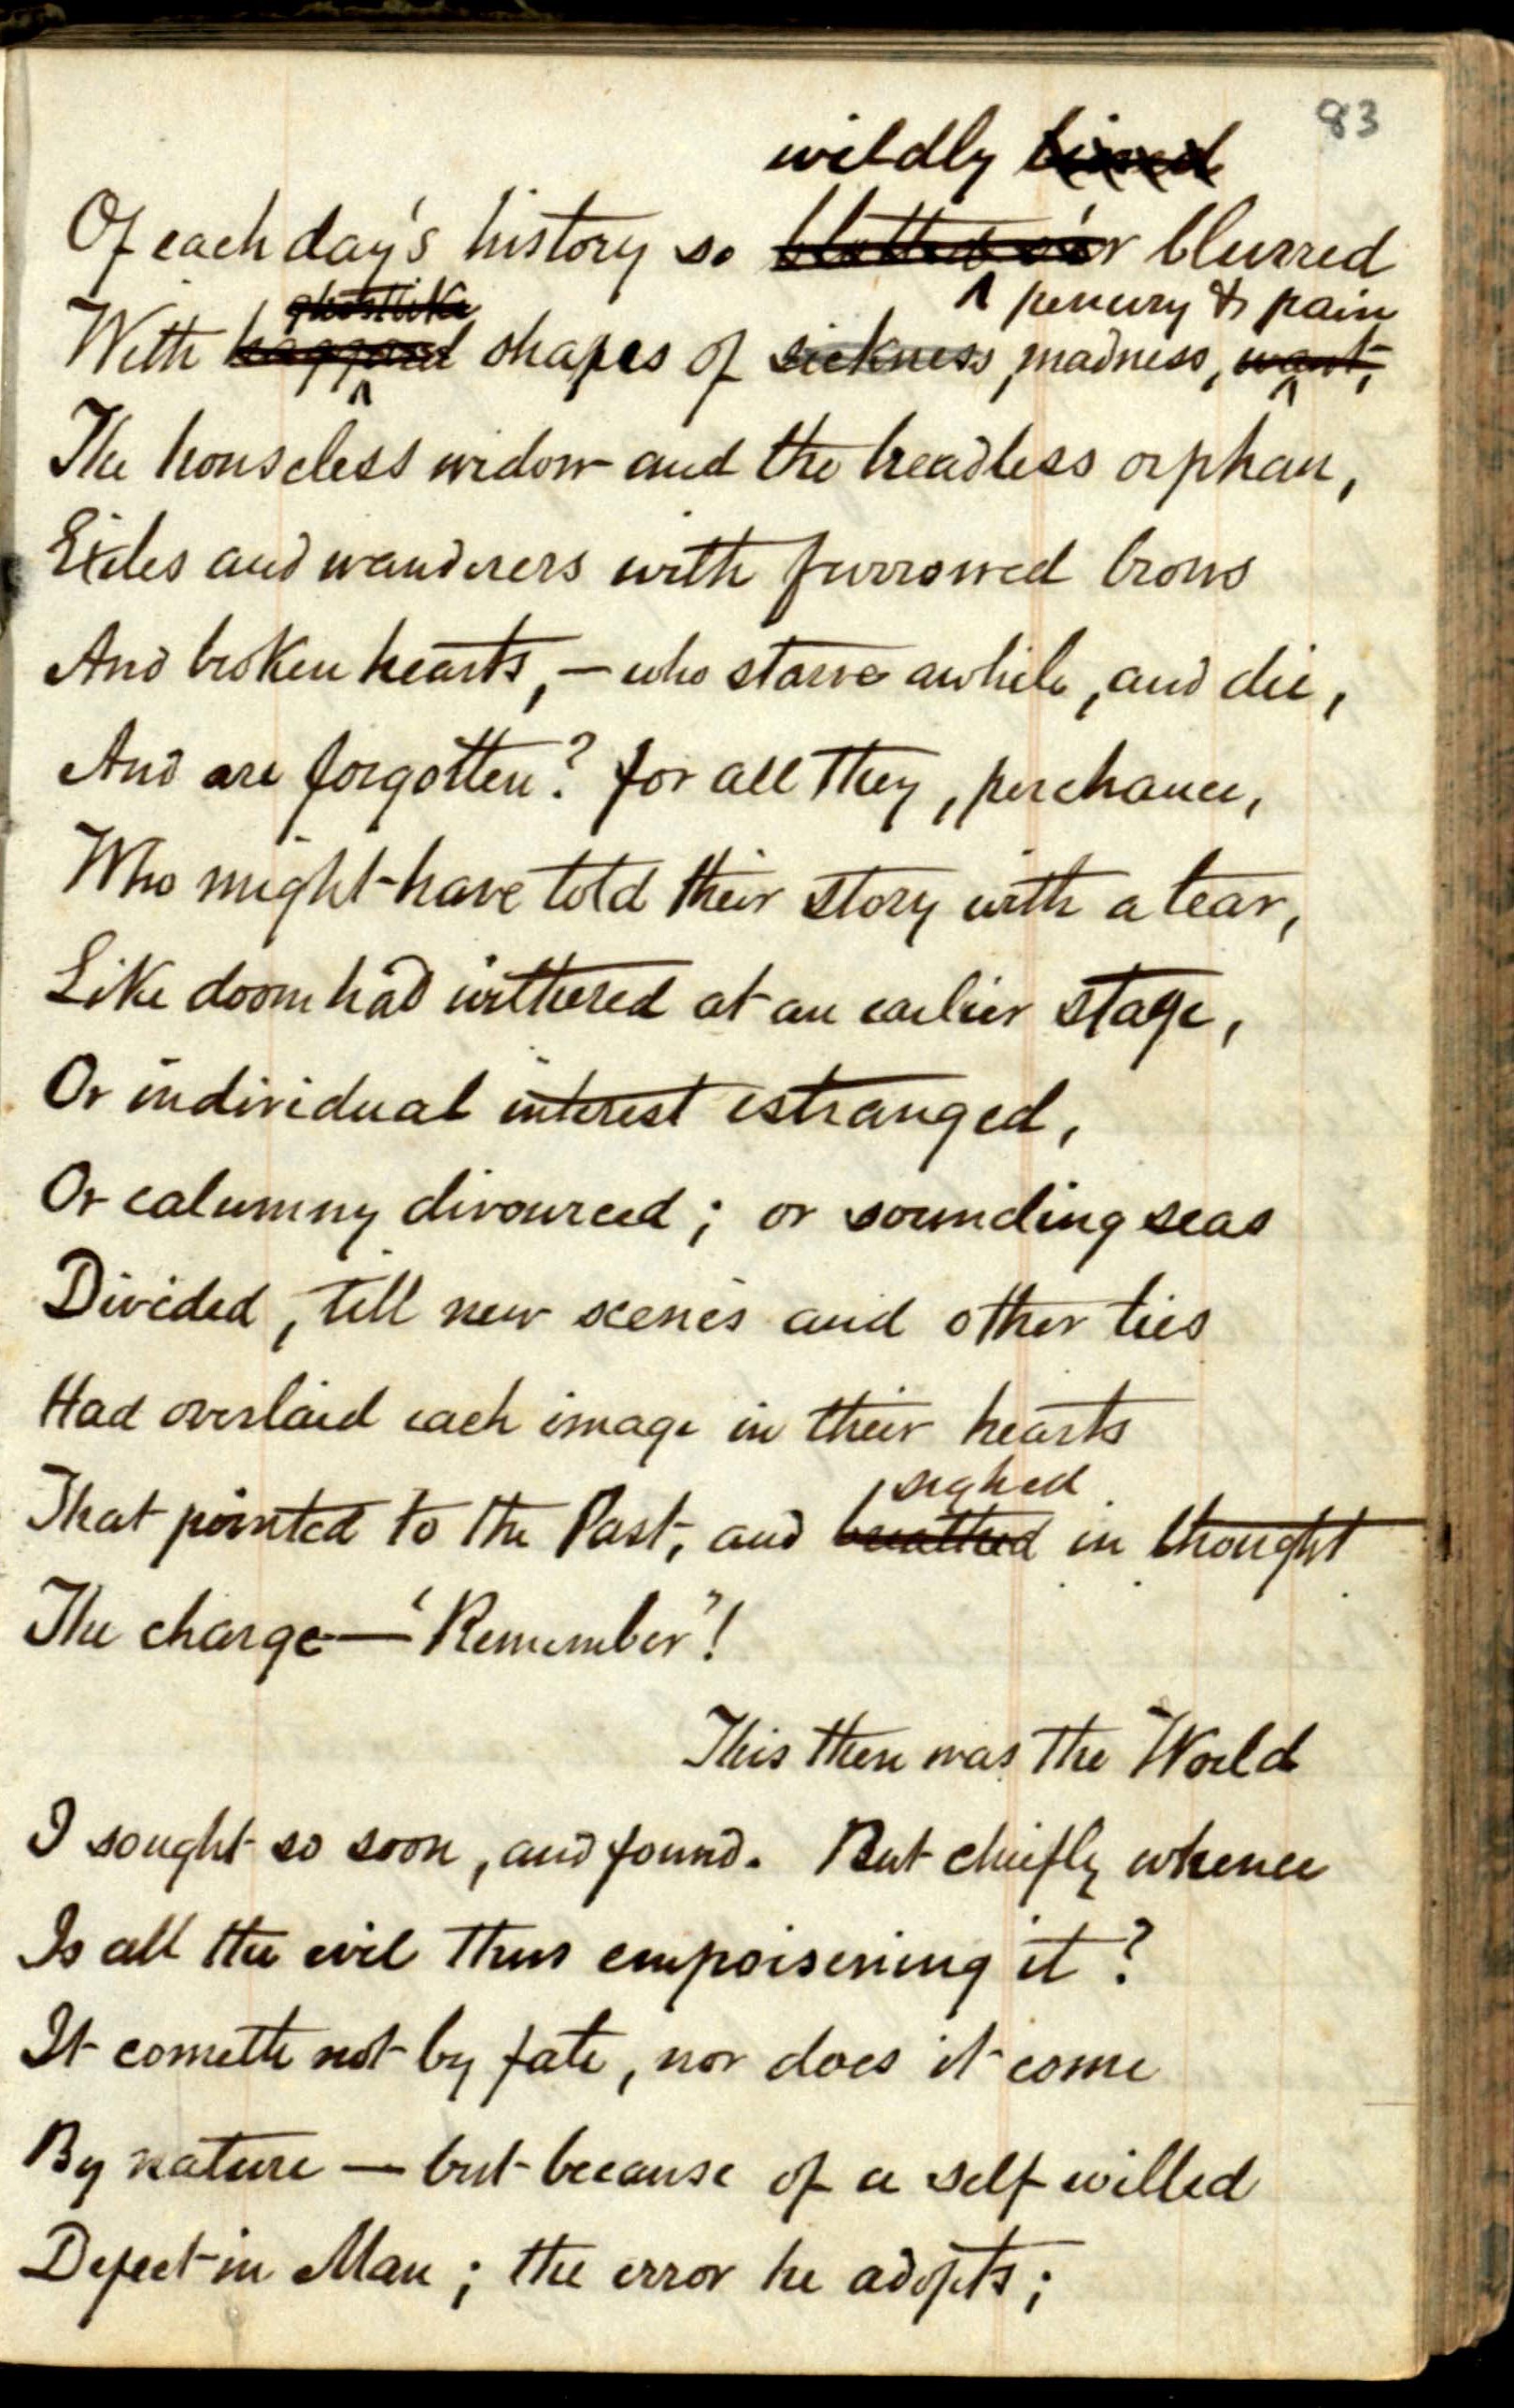 83
wildly
Of each day's history so blotted o'er blurred
ghostlike penury & pain
With haggard shapes of sickness, madness, want,
The houseless widow and the breadless orphan,
Exiles and wanderers with furrowed brows
And broken hearts, — who starve awhile, and die,
And are forgotten? for all they, perchance,
Who might have told their story with a tear,
Like doom had withered at an earlier stage,
Or individual interest estranged,
Or calumny divourced; or sounding seas
Divided, till new scenes and other ties
Had overlaid each image in their hearts
sighed
That pointed to the Past, and breathed in thought
The charge — "Remember"!
This then was the World
I sought so soon, and found. But chiefly whence
Is all the evil thus empoisening it?
It cometh not by fate, nor does it come
By nature — but because of a self willed
Defect in Man; the error he adopts;